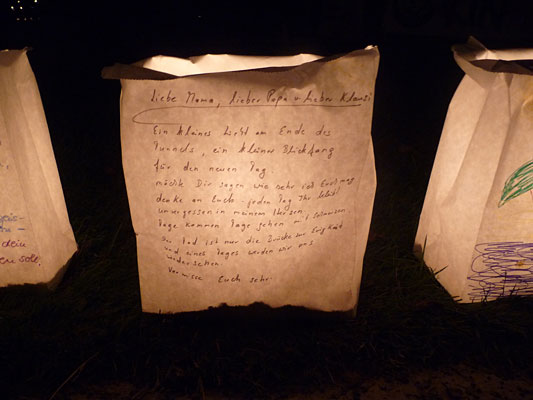 Liebe Mama, lieber Papa u lieber Klausi
Ein kleines Licht am Ende des
Tunnels, ein kleiner Blickfang
für den neuen Tag.
möcht Dir sagen wie sehr ich Euch mag
denke an Euch jeden Tag Ihr lebt
unvergessen in meinem Herzen
Tage kommen Tage gehen
Der Tod ist nur die Brücke zur Ewigkeit
und eines Tages werden wir uns
wiedersehen.
Vermisse Euch sehr.